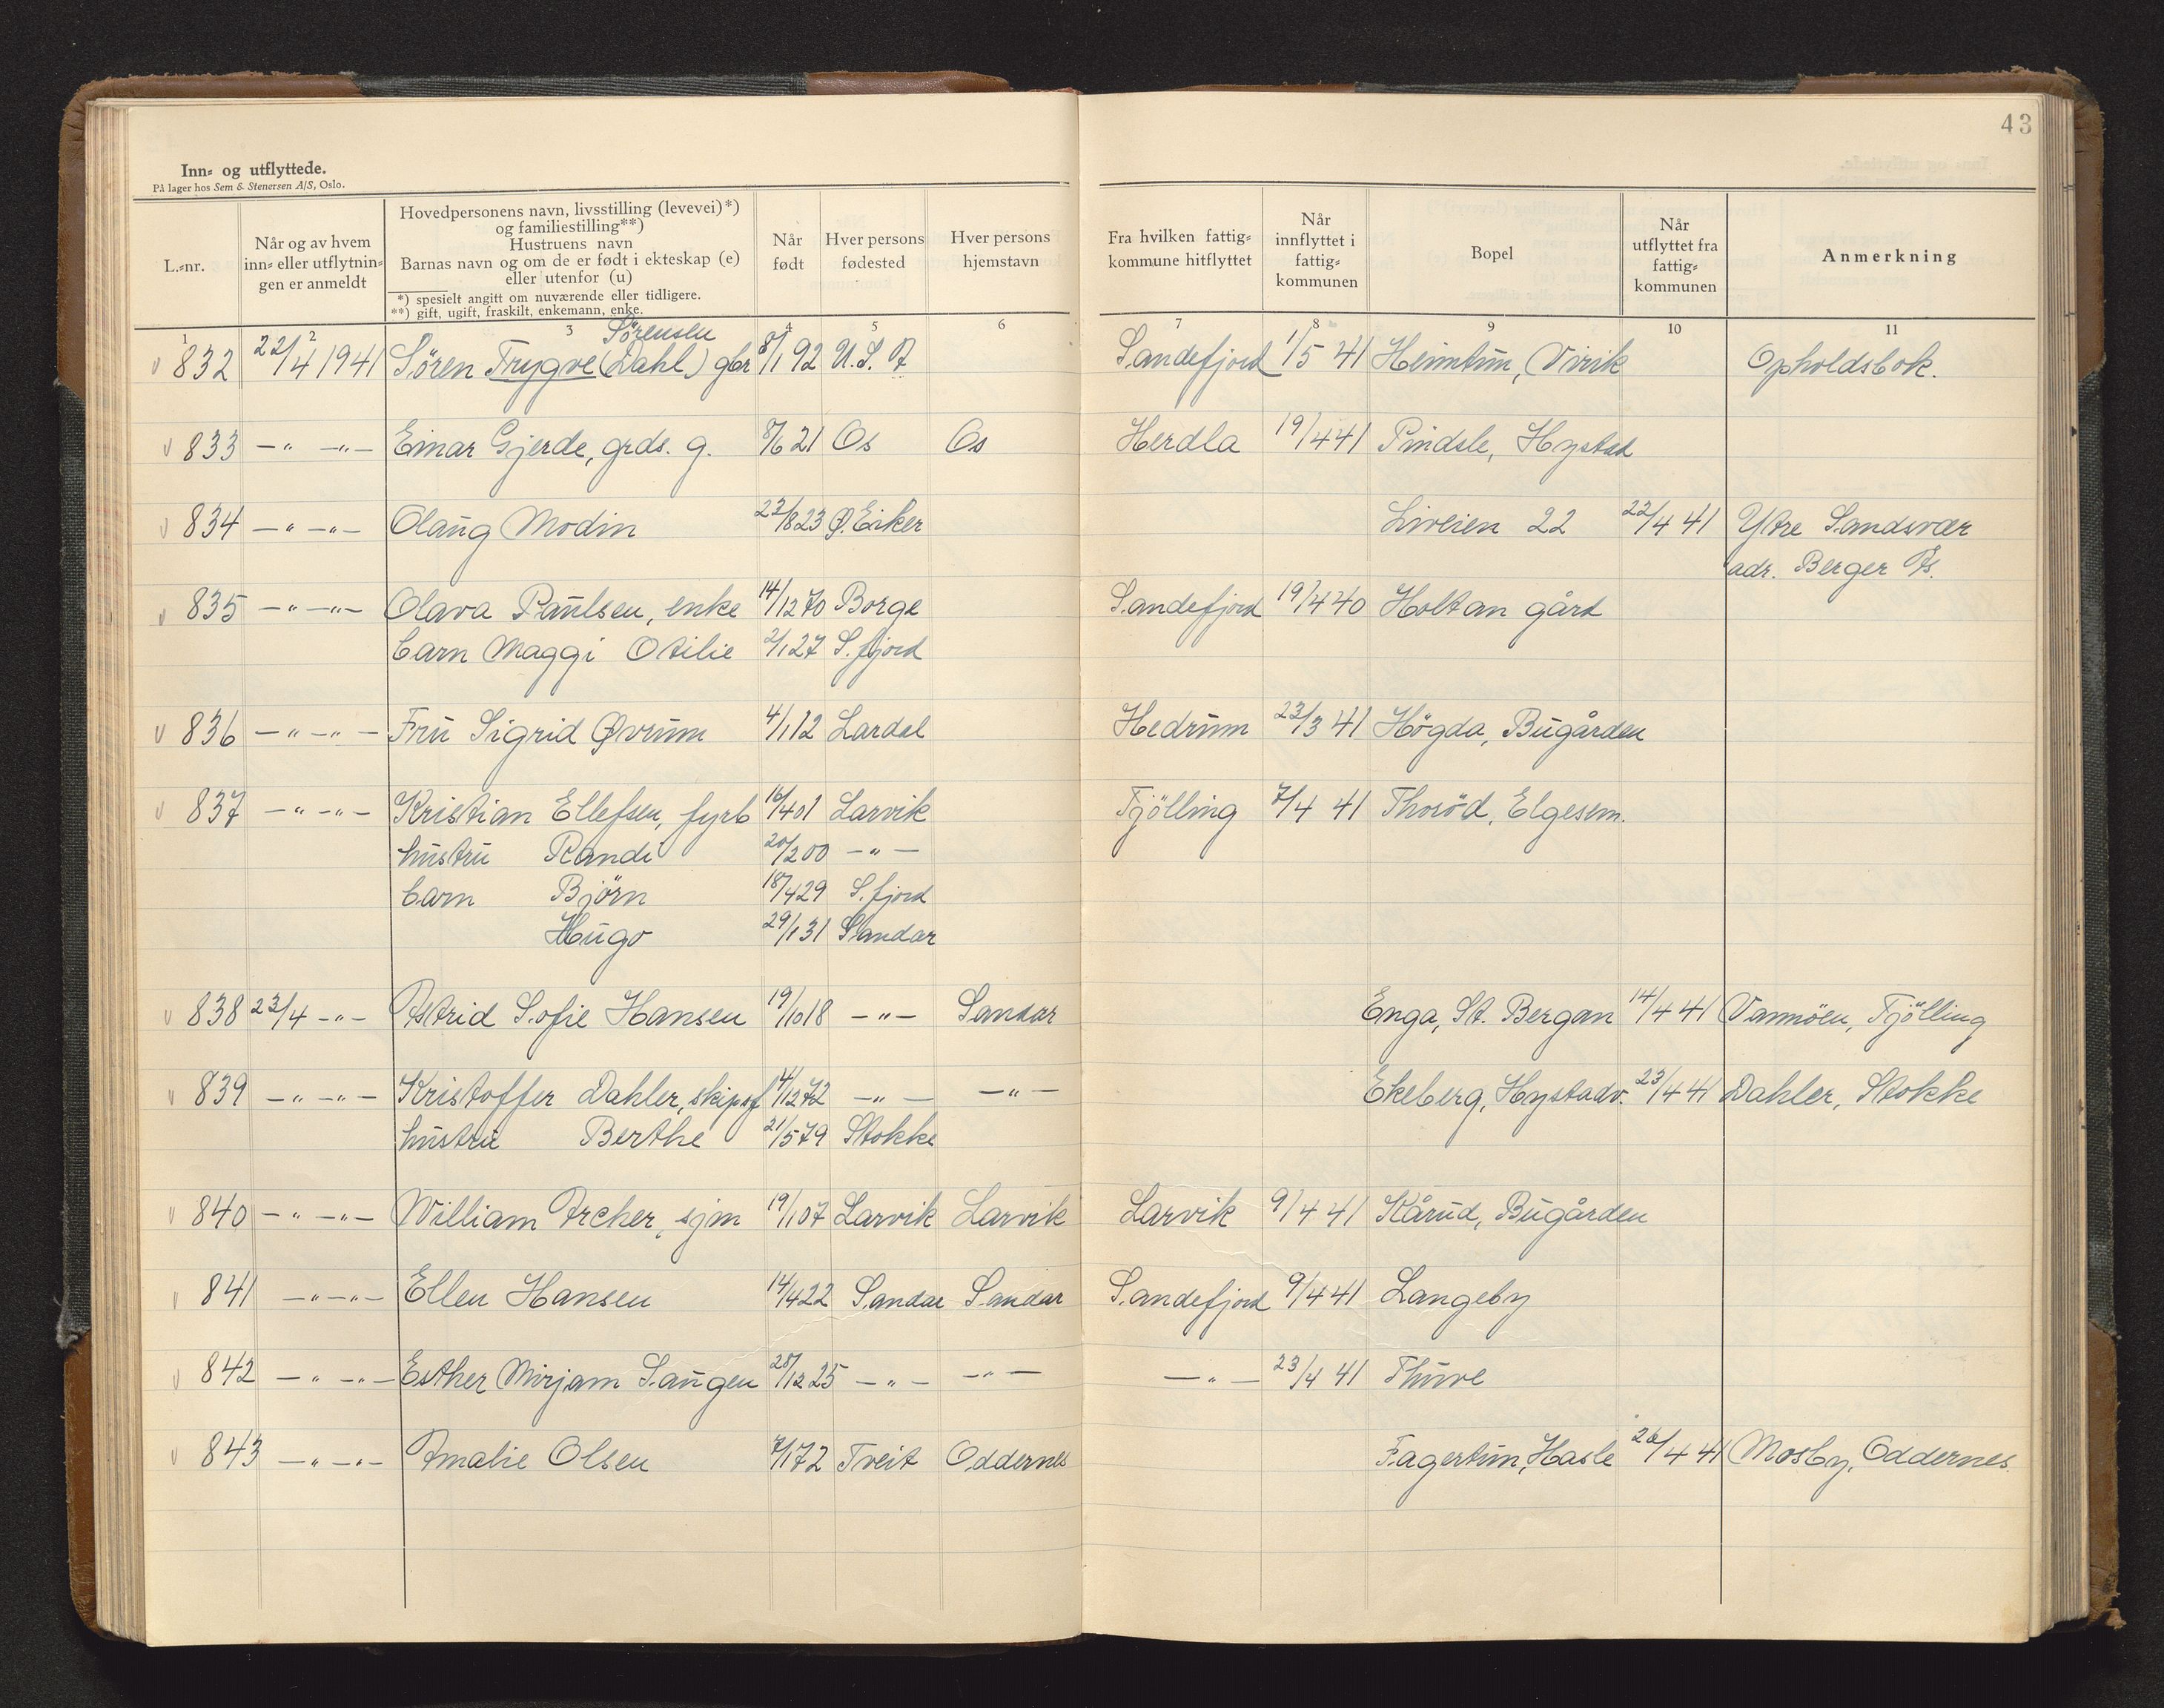 43
Inn- og utflyttede.
På lager hos Sem & Stenersen A/S, Oslo.
L.-nr.
Når og av hvem inn- eller utflytnin- gen er anmeldt
Hovedpersonens navn, livsstilling (levevei)*)
og familiestilling**)
Hustruens navn
Barnas navn og om de er født i ekteskap (e)
eller utenfor (u)
*) spesielt angitt om nuværende eller tidligere.
**) gift, ugift, fraskilt, enkemann, enke.
Når født
Hver persons fødested
Hver persons hjemstavn
Fra hvilken fattig- kommune hitflyttet
Når innflyttet i fattig- kommunen
Bopel
Når utflyttet fra fattig- kommunen
Anmerkning
1 2 3 4 5 6 7 8 9 10 11
Sörensen
832 22/4 1941 Sören Trygve (Dahl) gbr 8/1 92 U.S.A Sandefjord 1/5 41 Heimtun, Virik Opholdsbok.
833 -"- -"- Einar Gjerde, grds. g. 8/6 21 Os Os Herdla 19/4 41 Pindsle, Hystad
834 -"- -"- Olaug Modin 23/8 23 Ø. Eiker Liveien 22 22/4 41 Ytre Sandsvær
adr. Berger Ps.
835 -"- -"- Olava Paulsen, enke 14/12 70 Borge Sandefjord 19/4 40 Holtan gård
barn Maggi Otilie 2/1 27 S.fjord
836 -"- -"- Fru Sigrid Øvrum 4/1 12 Lardal Hedrum 23/3 41 Högda, Bugården
837 -"- -"- Kristian Ellefsen, fyrb 16/4 01 Larvik Tjölling 7/4 41 Thoröd, Elgesem.
hustru Randi 20/2 00 -"-
barn Björn 18/4 29 S.fjord
Hugo 29/1 31 Sandar
838 23/4 -"- Astrid Sofie Hansen 19/10 18 -"- Sandar Enga, St. Bergan 14/4 41 Vannöen, Tjölling
839 -"- -"- Kristoffer Dahler, skipsf 14/12 72 -"- -"- Ekeberg, Hystadv. 23/4 41 Dahler, Stokke
hustru Berthe 21/5 79 Stokke
840 -"- -"- William Archer, sjm 19/1 07 Larvik Larvik Larvik 9/4 41 Kårud, Bugården
841 -"- -"- Ellen Hansen 14/4 22 Sandar Sandar Sandefjord 9/4 41 Langeby
842 -"- -"- Esther Mirjam Saugen 28/12 25 -"- -"- -"- 23/4 41 Thuve
843 -"- -"- Amalie Olsen 7/1 72 Tveit Oddernes Fagertun, Hasle 26/4 41 Mosby, Oddernes.